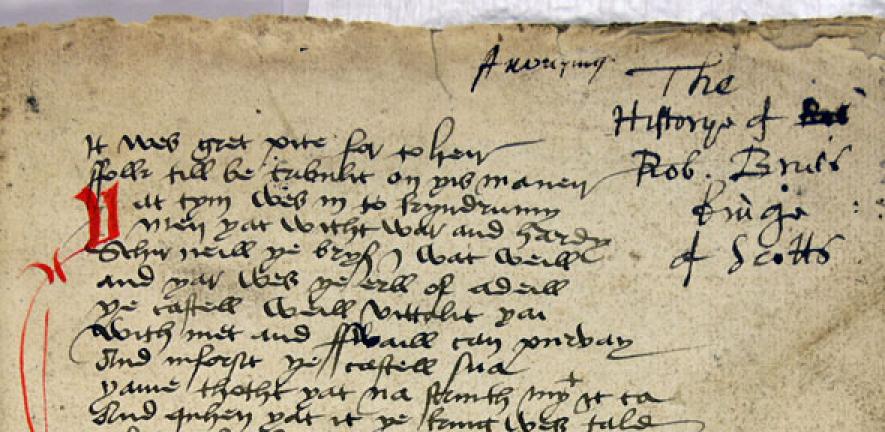 Anonymus
The
Historye of
Rob. Bruis
Kinge
of Scotts
It wes gret pite for to heir
ffolk till be trublit on yis maneir
Yat tym wes in to kyndrumy
men yat witht war and hardy
Schir neill ye bryß I wat weill
and yar wes ye erll of adeill
ye castell weill vittalit yai
With met and ffwaill can purvay
And inforsit ye castell sua
yame thotht yat na strinth myt it ta
And quhen yat it ye king wes tald